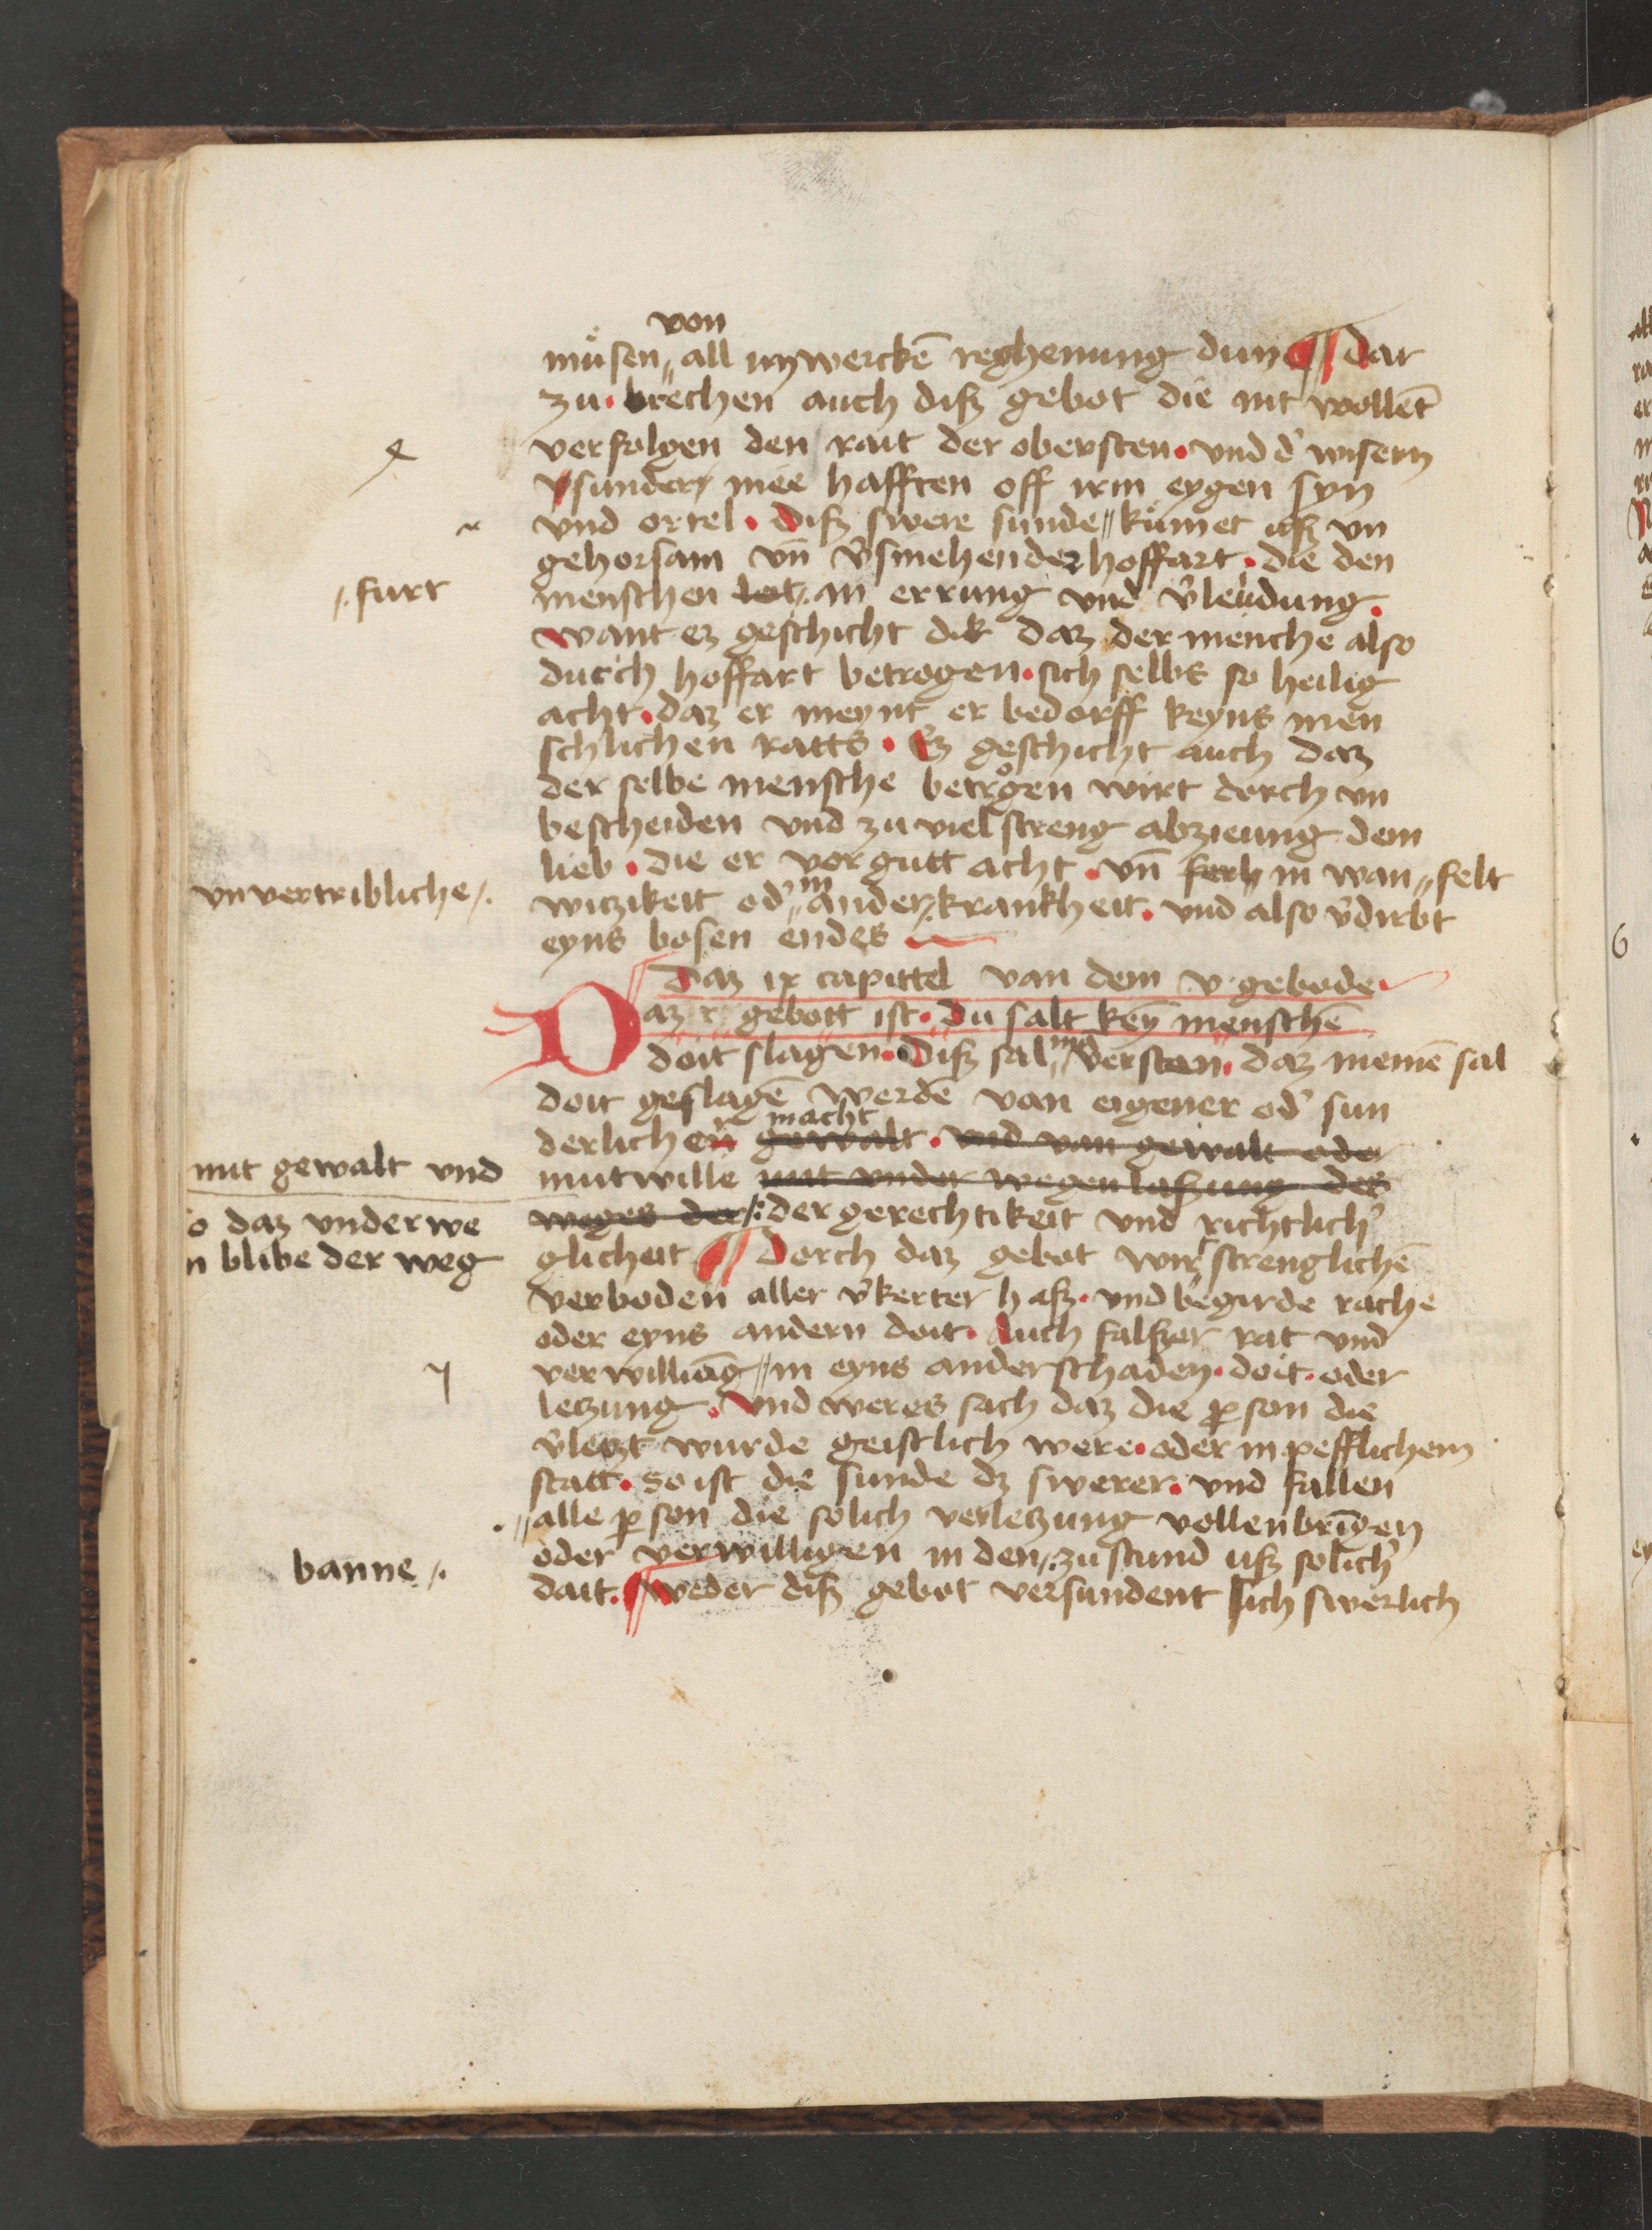 von
mu͑sen〃 all irn wercke̅ reghenung dun ¶ Dar
zu· brechen auch diß gebot die nit wolle̅t
verfolgen den rait der obersten· vnd d̕ wisern
vsunder mee hafften off irm eygen syn
vnd ortel· Diß swere sunde〃 kumet uß vn
gehorsam vn̅ v̕smehender hoffart· die den
·furt
menschen leit in errung vnd v̕leudung·
want ez geschicht dik daz der mensche also
durch hoffart betrogen· sich selbs so heilig
acht· daz er meynt er bedorff keyns men
schlichen ratts· Ez geschicht auch daz
der selbe mensche betrogen wirt dorch vn
bescheiden vnd zu viel streng abzieung dem
lieb· die er vor gutt acht· vn̅ in wan〃 felt
vnvertribliche
witzikeit od̕〃 in ander krankheit· vnd also v̕dirbt
eyns bosen endes
Daz ix capittel van dem v· gebode
Daz v· gebott ist· du salt key̅ mensche̅
doit slagen· Diß sal〃 me̅ verstan· daz nieme̅ sal
doit geslage̅ werde̅ van eigener od̕ sun
macht
derlicher gewalt· vnd van gewalt oder
mit gewalt vnd
mutwille mit vnder wegen laßung des
o daz vnderwe
weges der der gerechtikeit vnd richtlich̕
n blibe der weg
glicheit ¶ Dorch daz gebot wirt strengliche̅
verboden aller v̕kerter haß· vnd begirde rache
oder eyns andern doit· Auch falscher rat vnd
verwilliu̅g〃 in eyns anderschaden· doit· oder
letzung· Vnd wer es sach daz die ꝑson die
v̕letzt wurde geistlich were· oder in pefflichem
statt· so ist die sunde dz swerer· vnd fallen
〃alle ꝑson die solich verletzung vollenbri̅gen
banne
oder verwilligen in den· zu stund uß solich̕
dait· ¶ weder diß gebot versundent sich swerlich